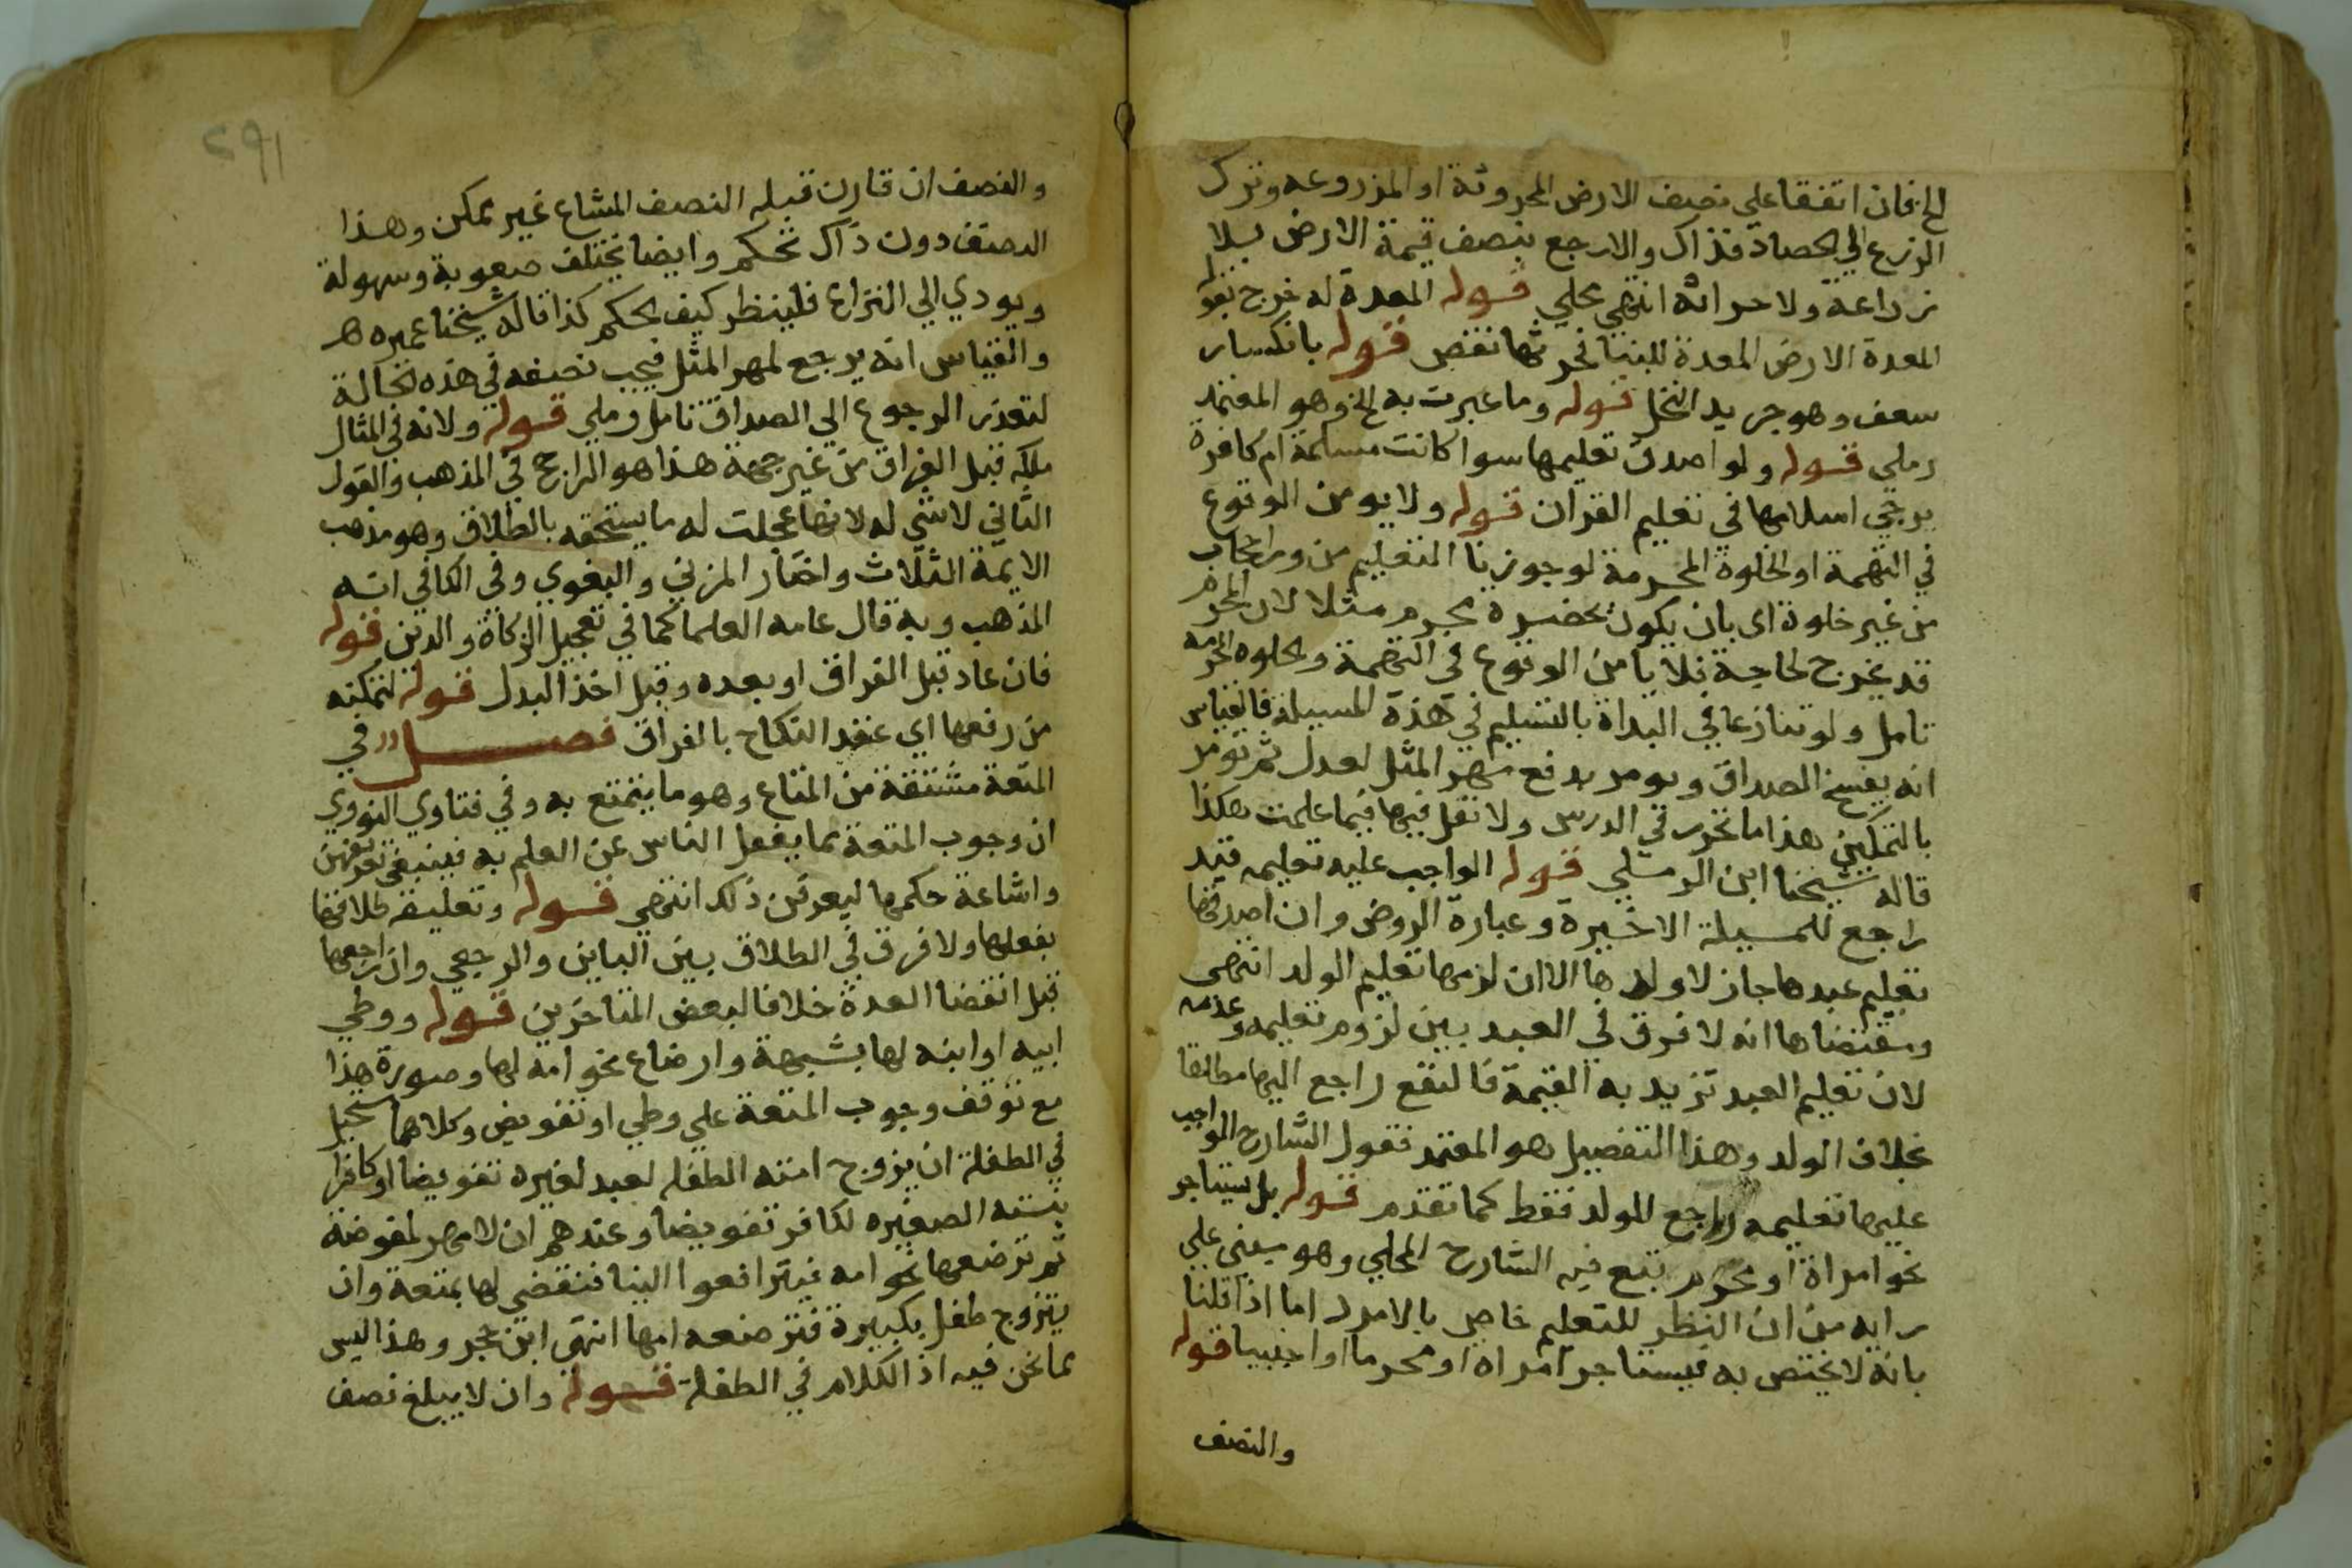 الخ فان اتفقا على نصف الارض المحروثة او المزروعه وترك
الزرع الي الحصاد فذاك والا رجع بنصف قيمة الارض بلا
زراعة ولا حراثة انتهي محلي قوله المعدة له خرج بقوله
المعدة الارض المعدة للبنا فحرثها نقص قوله بانكسار
سعف وهو جريد النخل قوله وما عبرت به الخ وهو المعتمد
رملي قوله ولو اصدق تعليمها سوا كانت مسلمة ام كافرة
يرجي اسلامها في تعليم القران قوله ولا يومن الوقوع
في التهمة او الخلوة المحرمة لو جوزنا التعليم من ورا حجاب
من غير خلوة اى بان يكون بحضرة محرم مثلا لان المحرم
قد يخرج لحاجة فلا يامن الوقوع في التهمة والخلوه المحرمه
تامل ولو تنازعا في البداة بالتسليم في هذة المسيلة فالقياس
انه يفسخ الصداق ويومر بدفع مهر المثل لعدل ثم تومر
بالتمكين هذا ما تحرر في الدرس ولا نقل فيها فيما علمت هكذا
قاله شيخنا ابن الرملي قوله الواجب عليه تعليمه قيد
راجع للمسيلة الاخيرة وعبارة الروض وان اصدقها
تعليم عبدها جاز لا ولدها الا ان لزمها تعليم الولد انتهى
ومقتضاها انه لا فرق في العبد بين لزوم تعليمه وعدمه
لان تعليم العبد تزيد به القيمة فالنفع راجع اليها مطلقا
بخلاف الولد وهذا التفصيل هو المعتمد فقول الشارح الواجب
عليها تعليمه راجع للولد فقط كما تقدم قوله بل يستاجر
نحو امراة او محرم تبع فيه الشارح المحلي وهو مبني علي
رايه من ان النظر للتعليم خاص بالامرد اما اذا قلنا
بانه لا يختص به فيستاجر امراة او محرما او اجنبيا قوله
والنصف
٢٩١
والنصف ان قارن قبله النصف المشاع غير ممكن وهذا
النصف دون ذاك تحكم وايضا يختلف صعوبة وسهولة
ويودي الي النزاع فلينظر كيف الحكم كذا قاله شيخنا عميره هـ
والقياس انه يرجع لمهر المثل فيجب نصفه في هذه الحالة
لتعذر الرجوع الي الصداق تامل رملي قوله ولانه في المثال
ملكه قبل الفراق من غير جهة هذا هو الراجح في المذهب والقول
الثاني لا شي له لانها عجلت له ما يستحقه بالطلاق وهو مذهب
الايمة الثلاث واختار المزني والبغوي وفي الكافي انه
المذهب وبه قال عامه العلما كما في تعجيل الزكاة والدين قوله
فان عاد قبل الفراق او بعده وقبل اخذ البدل قوله لتمكنه
من رفعها اي عقد النكاح بالفراق فصل في
المتعة مشتقة من المتاع وهو ما يتمتع به وفي فتاوي النووي
ان وجوب المتعة مما يغفل الناس عن العلم به فينبغي تعريفهن
واشاعة حكمها ليعرفن ذلك انتهى قوله وتعليقه طلاقها
بفعلها ولا فرق في الطلاق بين الباين والرجعي وان راجعها
قبل انقضا العدة خلافا لبعض المتاخرين قوله ووطي
ابيه او ابنه لها بشبهة وارضاع نحو امه لها وصورة هذا
مع توقف وجوب المتعة علي وطي او تفويض وكلاهما مستحيل
في الطفلة ان يزوج امته الطفله لعبد لغيره تفويضا او كافرا
بنته الصغيره لكافر تفويضا وعندهم ان لا مهر لمفوضة
ثم ترضعها نحو امه فيترافعوا الينا فنقضي لها بمتعة وان
يتزوج طفل بكبيرة فترضعه امها انتهى ابن حجر وهذا ليس
مما نحن فيه اذ الكلام في الطفلة قوله وان لا يبلغ نصف